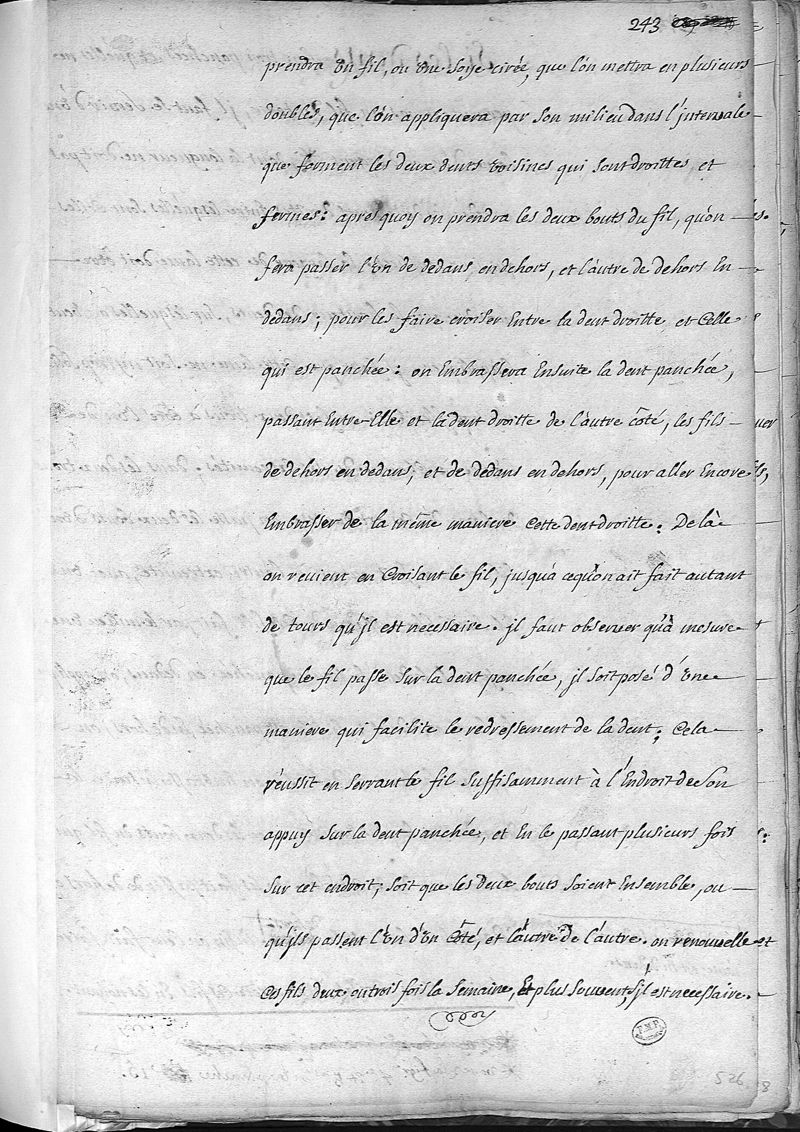 243
prendra un fil, ou une soÿe cirée, que l'on mettra en plusieurs
doubles, que l'on appliquera par son milieu dans l'jntervale
que forment les deux dents voisines qui sont droittes et
fermes: apres quoy on prendra les deux bouts du fil, qu'on
fera passer l'un de dedans en dehors, et l'autre de dehors En
dedans; pour les faire croiser Entre la dent droitte et Celle
qui est panchée: on Embrassera Ensuite la dent panchée,
passant Entre Elle et la dent droitte de l'autre côté, les fils
de dehors en dedans, et de dedans en dehors, pour aller Encore
Embrasser de la même maniere Cette dent droitte. De là
on revient en Croisant le fil, jusqu'a ce qu'on ait fait autant
de tours qu'jl est necessaire. jl faut observer qu'à mesure
que le fil passe sur la dent panchée, jl soit posé d'une
maniere qui facilite le redressement de la dent; Cela
réussit en serrant le fil suffisamment à l'Endroit de son
appuÿ sur la dent panchée, et En le passant plusieurs fois
sur cet endroit; soit que les deux bouts soient Ensemble, ou
qu'jls passent l'un d'un Côté, et l'autre de l'autre. on renouvelle
Ces fils deux ou trois fois la semaine, Et plus souvent, s'jl est necessaire.
F.M.P.
526